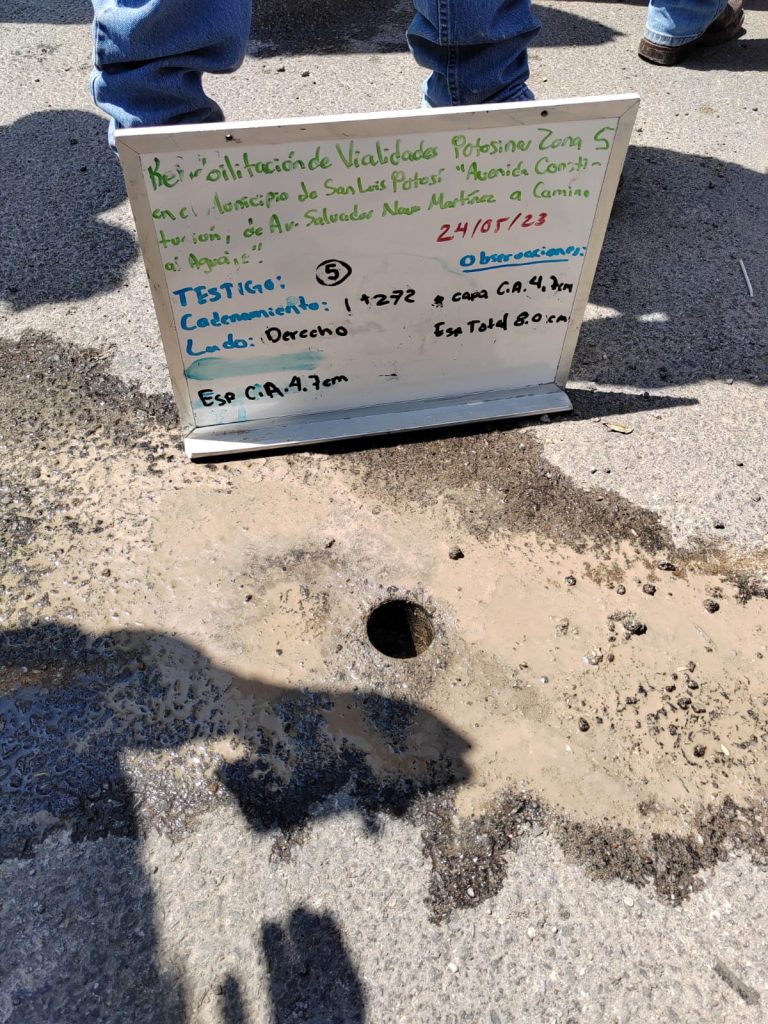 Rehabilitación de Vialidades Potosinas Zona 5
en el Municipio de San Luis Potosí "Avenida Consti-
tución, de Av. Salvador Nava Martínez a Camino
al Aguaje".
24/05/23
TESTIGO: 5
Observaciones:
Cadenamiento: 1+272
* capa C.A. 4.7cm
Lado: Derecho
Esp Total 8.0 cm
Esp C.A. 4.7cm